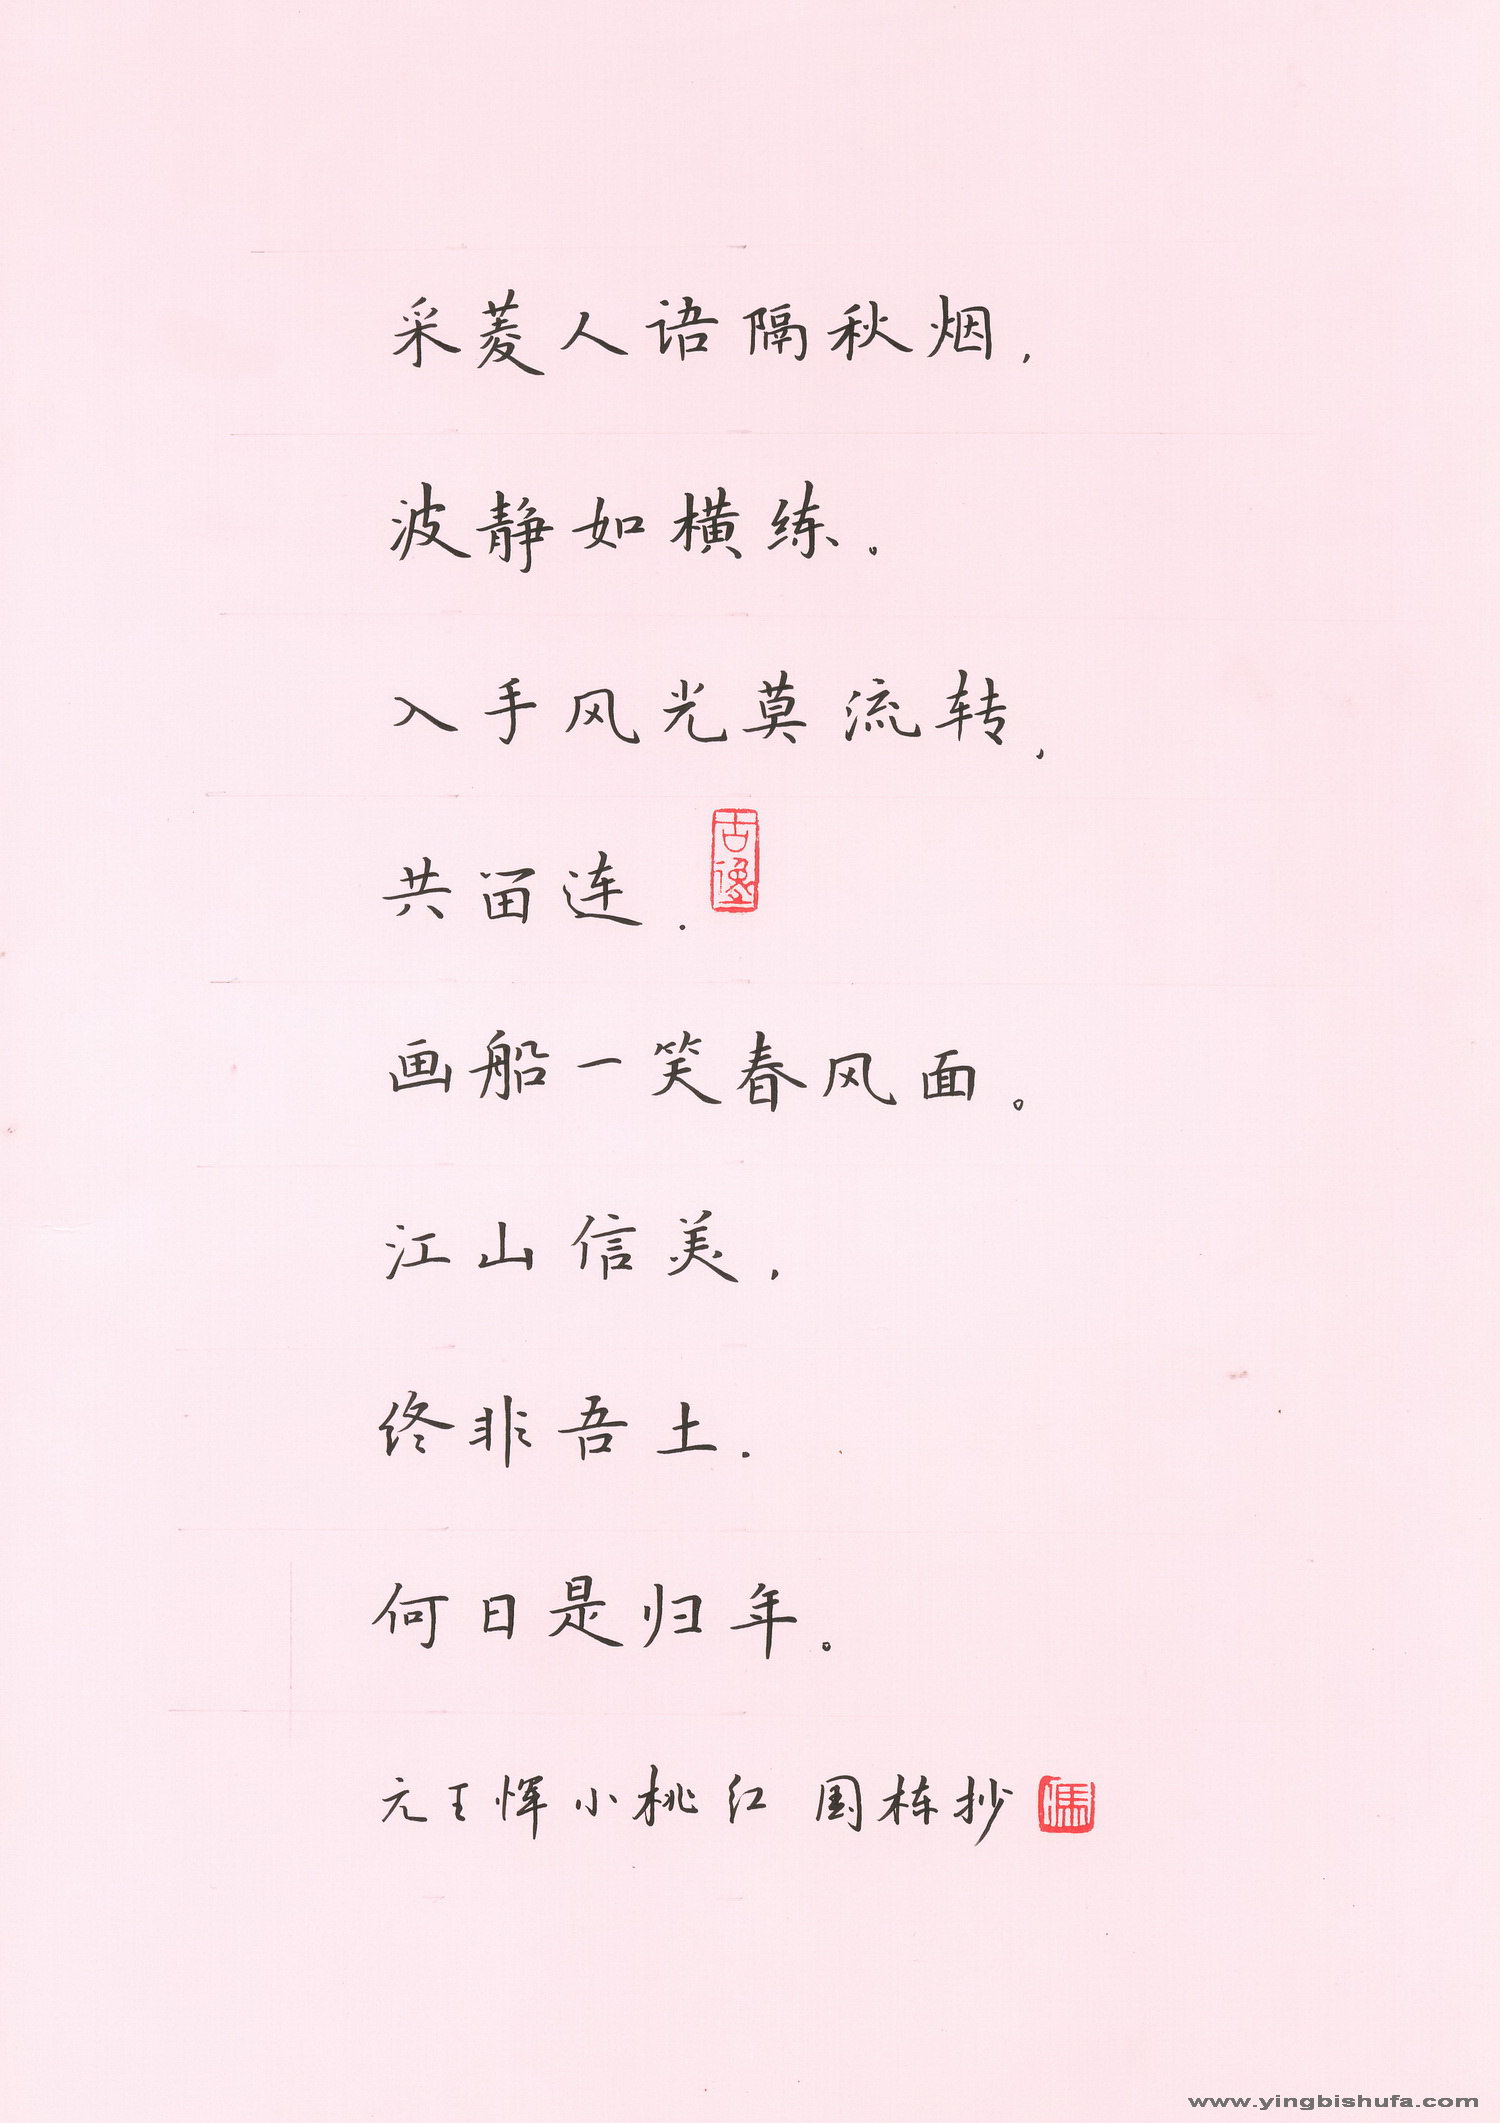 采菱人语隔秋烟，
波静如横练。
入手风光莫流转，
共畄连．
画船一笑春风面。
江山信美，
终非吾土．
何日是归年。
元王恽小桃红 国栋抄
www.yingbishufa.com